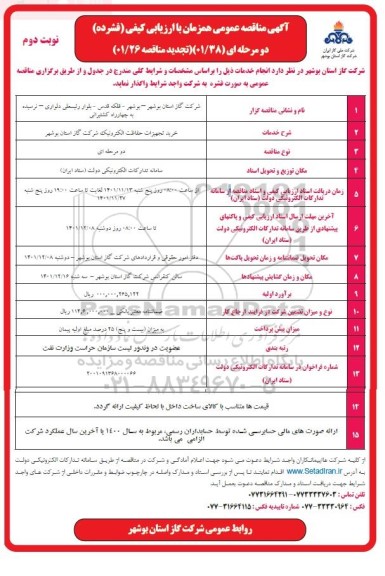 آگهی مناقصه عمومی همزمان با ارزیابی کیفی (فشرده)
دو مرحله ای (۰۱/۳۸)(تجدید مناقصه ۰۱/۲۶)
نوبت دوم
شرکت ملی گاز ایران
شرکت گاز استان بوشهر
شرکت گاز استان بوشهر در نظر دارد انجام خدمات ذیل را براساس مشخصات و شرایط کلی مندرج در جدول و از طریق برگزاری مناقصه
عمومی به صورت فشرده به شرکت واجد شرایط واگذار نماید.
۱ نام و نشانی مناقصه گزار شرکت گاز استان بوشهر – بوشهر – فلکه قدس – بلوار رئیسعلی دلواری – نرسیده
به چهارراه کشتیرانی
۲ شرح خدمات خرید تجهیزات حفاظت الکترونیک شرکت گاز استان بوشهر
۳ نوع مناقصه دو مرحله ای
۴ مکان توزیع و تحویل اسناد سامانه تدارکات الکترونیکی دولت (ستاد ایران)
۵ زمان دریافت اسناد ارزیابی کیفی و اسناد مناقصه از سامانه
تدارکات الکترونیکی دولت (ستاد ایران)
از ساعت ۰۸:۰۰ روز پنج شنبه ۱۴۰۱/۱۱/۱۳ لغایت تا ساعت ۱۹:۰۰ روز پنج شنبه
۶ آخرین مهلت ارسال اسناد ارزیابی کیفی و پاکتهای
پیشنهادی از طریق سامانه تدارکات الکترونیکی دولت
(ستاد ایران)
تا ساعت ۰۸:۰۰ روز دوشنبه ۱۴۰۱/۱۲/۰۸
۷ مکان تحویل ضمانتنامه و زمان تحویل پاکت‌ها دفتر امور حقوقی و قراردادهای شرکت گاز استان بوشهر – دوشنبه ۱۴۰۱/۱۲/۰۸
۸ مکان و زمان گشایش پیشنهادها سالن کنفرانس شرکت گاز استان بوشهر – سه شنبه ۱۴۰۱/۱۲/۱۶
۹ برآورد اولیه ریال
۱۰ نوع و میزان تضمین شرکت در فرایند ارجاع کار ضمانتنامه معتبر بانکی ریال
۱۱ میزان پیش پرداخت به میزان (بیست و پنج) ۲۵ درصد مبلغ اولیه پیمان
۱۲ رتبه بندی عضویت در وندور لیست سازمان حراست وزارت نفت
۱۳ شماره فراخوان در سامانه تدارکات الکترونیکی دولت
(ستاد ایران)
۱۴ قیمت ها متناسب با کالای ساخت داخل با لحاظ کیفیت ارائه گردد.
۱۵ ارائه صورت های مالی حسابرسی شده توسط حسابداران رسمی، مربوط به سال ۱۴۰۰ یا آخرین سال عملکرد شرکت
الزامی می باشد.
ParsNamadData
پایگاه اطلاع رسانی مناقصه و مزایده
۰۲۱-۸۸۳۴۹۶۷۰-۵
از کلیه شرکت ها/پیمانکاران واجد شرایط دعوت می شود جهت اعلام آمادگی و شرکت در مناقصه از طریق سامانه تدارکات الکترونیکی دولت
به آدرس www.Setadiran.ir اقدام نمایند تا پس از بررسی اسناد و مدارک واصله در چارچوب ضوابط و مقررات داخلی از شرکت های واجد
شرایط جهت دریافت اسناد و مدارک مناقصه دعوت بعمل آید.
تلفن تماس: ۰۷۷۳۳۳۳۷۶۰۳-۰۷۷۳۱۶۶۴۲۱۱
شماره تاییدیه فکس: ۰۷۷-۳۱۶۶۴۱۱۵
روابط عمومی شرکت گاز استان بوشهر